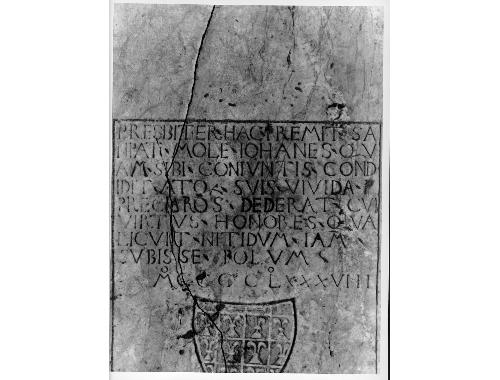 PRESBITER·HAC·PREMIT·SA
TIPATI·MOLE·IOHANES·QV
AM·SIBI·CONIVNTIS·COND
IDIT·ATQ·SVIS·VIVIDA·P
PRECLAROS·DEDERAT·CVI
VIRTVS·HONORES·QVA
LICVIT·NITIDVM·IAM
SVBISSE·POLVM
M CCCC LXXXVIII